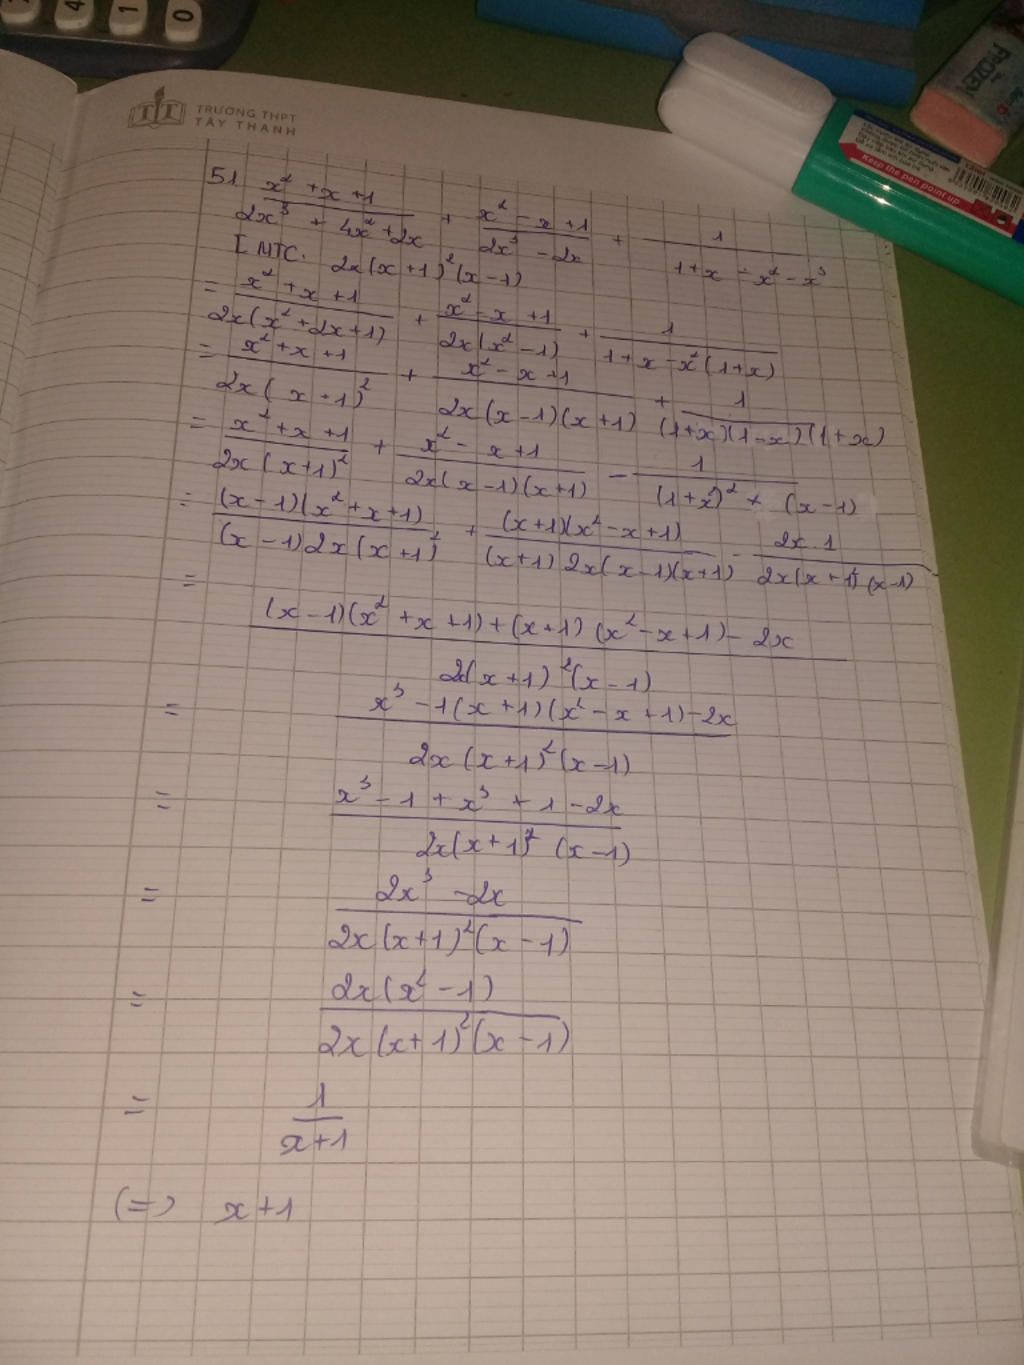 4 1 0
FROZEN
Keep the pen point up
TRƯỜNG THPT
TÂY THẠNH
51. (x² + x + 1)/(2x³ + 4x² + 2x) + (x² - x + 1)/(2x³ - 2x) + 1/(1 + x - x² - x³)
[MTC. 2x(x+1)²(x-1)
= (x² + x + 1)/(2x(x² + 2x + 1)) + (x² - x + 1)/(2x(x² - 1)) + 1/(1 + x - x²(1+x))
= (x² + x + 1)/(2x(x+1)²) + (x² - x + 1)/(2x(x-1)(x+1)) + 1/((1+x)(1-x)(1+x))
= (x² + x + 1)/(2x(x+1)²) + (x² - x + 1)/(2x(x-1)(x+1)) - 1/((1+x)² + (x-1))
= (x-1)(x² + x + 1)/((x-1)2x(x+1)²) + (x+1)(x² - x + 1)/((x+1)2x(x-1)(x+1)) - 2x.1/(2x(x+1)²(x-1))
= ((x-1)(x² + x + 1) + (x+1)(x² - x + 1) - 2x)/(2(x+1)²(x-1))
= (x³ - 1(x+1)(x² - x + 1) - 2x)/(2x(x+1)²(x-1))
= (x³ - 1 + x³ + 1 - 2x)/(2x(x+1)²(x-1))
= (2x³ - 2x)/(2x(x+1)²(x-1))
= 2x(x² - 1)/(2x(x+1)²(x-1))
= 1/(x+1)
(=) x+1